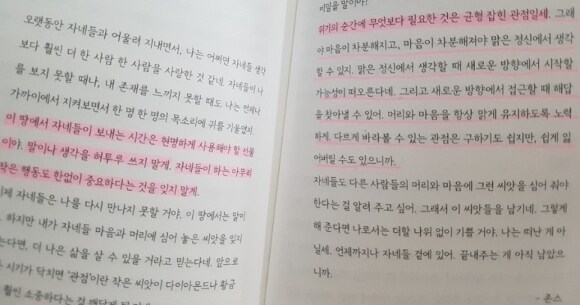 오랫동안 자네들과 어울려 지내면서, 나는 어쩌면 자네들 생각
보다 훨씬 더 한 사람 한 사람을 사랑한 것 같네. 자네들이 나
를 보지 못할 때나, 내 존재를 느끼지 못할 때도 나는 언제나
가까이에서 지켜보면서 한 명 한 명의 목소리에 귀를 기울였지.
이 땅에서 자네들이 보내는 시간은 현명하게 사용해야 할 선물
이야. 말이나 생각을 허투루 쓰지 말게. 자네들이 하는 아무리
작은 행동도 한없이 중요하다는 것을 잊지 말게.
이제 자네들은 나를 다시 만나지 못할 거야. 이 땅에서는 말이
하지만 내가 자네들 마음과 머리에 심어 놓은 씨앗을 잊지
는다면, 더 나은 삶을 살 수 있을 거라고 믿는다네. 앞으로
시기가 닥치면 '관점'이란 작은 씨앗이 다이아몬드나 황금
훨씬 소중하다는 걸 깨닫게 될
비밀을 말이야!
위기의 순간에 무엇보다 필요한 것은 균형 잡힌 관점일세. 그래
야 마음이 차분해지고, 마음이 차분해져야 맑은 정신에서 생각
할 수 있지. 맑은 정신에서 생각할 때 새로운 방향에서 시작할
가능성이 떠오른다네. 그리고 새로운 방향에서 접근할 때 해답
을 찾아낼 수 있어. 머리와 마음을 항상 맑게 유지하도록 노력
하게. 다르게 바라볼 수 있는 관점은 구하기도 쉽지만, 쉽게 잃
어버릴 수도 있으니까.
자네들도 다른 사람들의 머리와 마음에 그런 씨앗을 심어 줘야
한다는 걸 알려 주고 싶어. 그래서 이 씨앗들을 남기네. 그렇게
해 준다면 나로서는 더할 나위 없이 기쁠 거야. 나는 떠난 게 아
닐세. 언제까지나 자네들 곁에 있어. 끝내주는 게 아직 남았으
니까.
- 존스